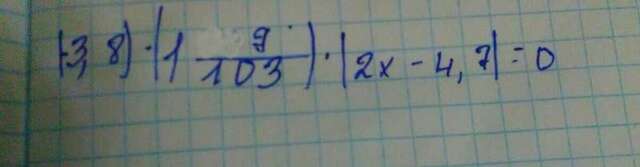 |-3,8|·|1 9/103|·|2x-4,7|=0